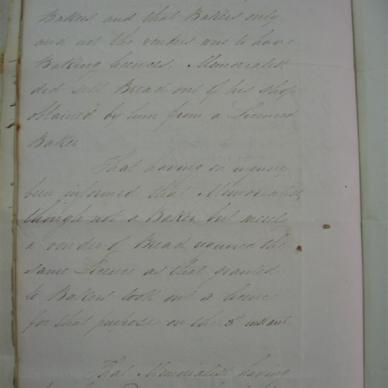 Bakers and that Bakers only
and not the vendors was to have
Baking licences. Memorialist
did sell Bread out of his shop
obtained by him from a Licensed
Baker
That having on
been informed that Memorialist,
though not a Baker but merely
a vender of Bread, required the
same Licence as that granted
to Bakers took out a licence
for that purpose on the 3d instant
That Memorialist having